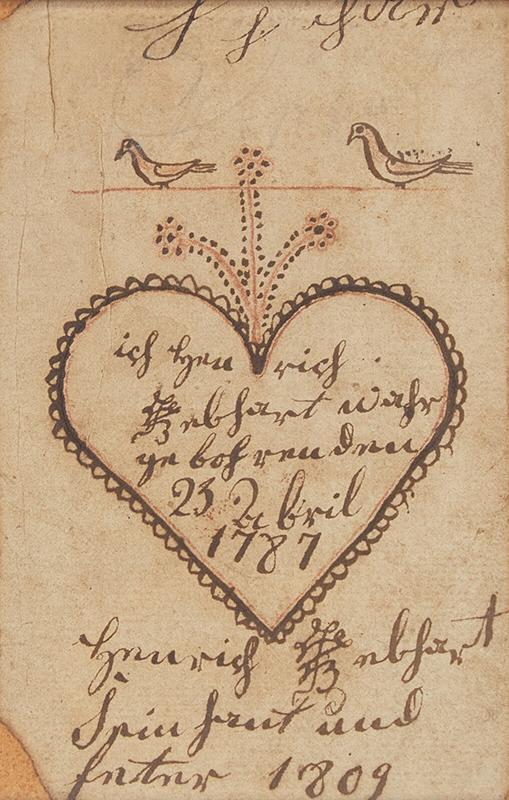 ich Henrich
Gebhart wahr
gebohren den
25 Abril
1787
Henrich Gebhart
sein hant und
feter 1809